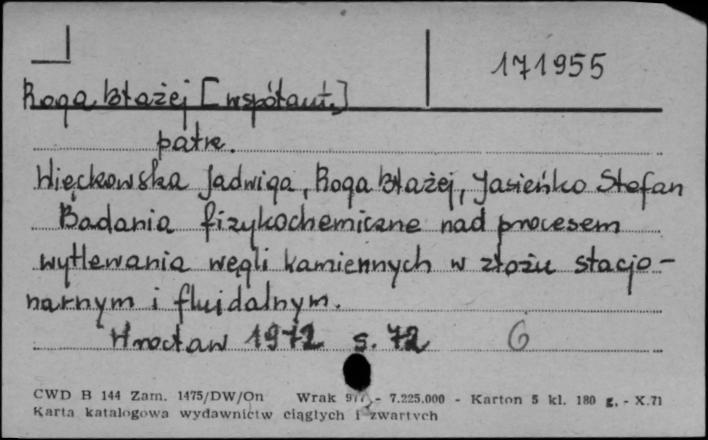 171955
Roga Błażej [współaut.]
patrz.
Więckowska Jadwiga, Roga Błażej, Jasieńko Stefan
Badania fizykochemiczne nad procesem
wytlewania węgli kamiennych w złożu stacjo-
narnym i fluidalnym.
Wrocław 1972 s. 72 6
CWD B 144 Zam. 1475/DW/On Wrak - 7.225.000 - Karton 5 kl. 180 g. - X.71
Karta katalogowa wydawnictw ciągłych i zwartych